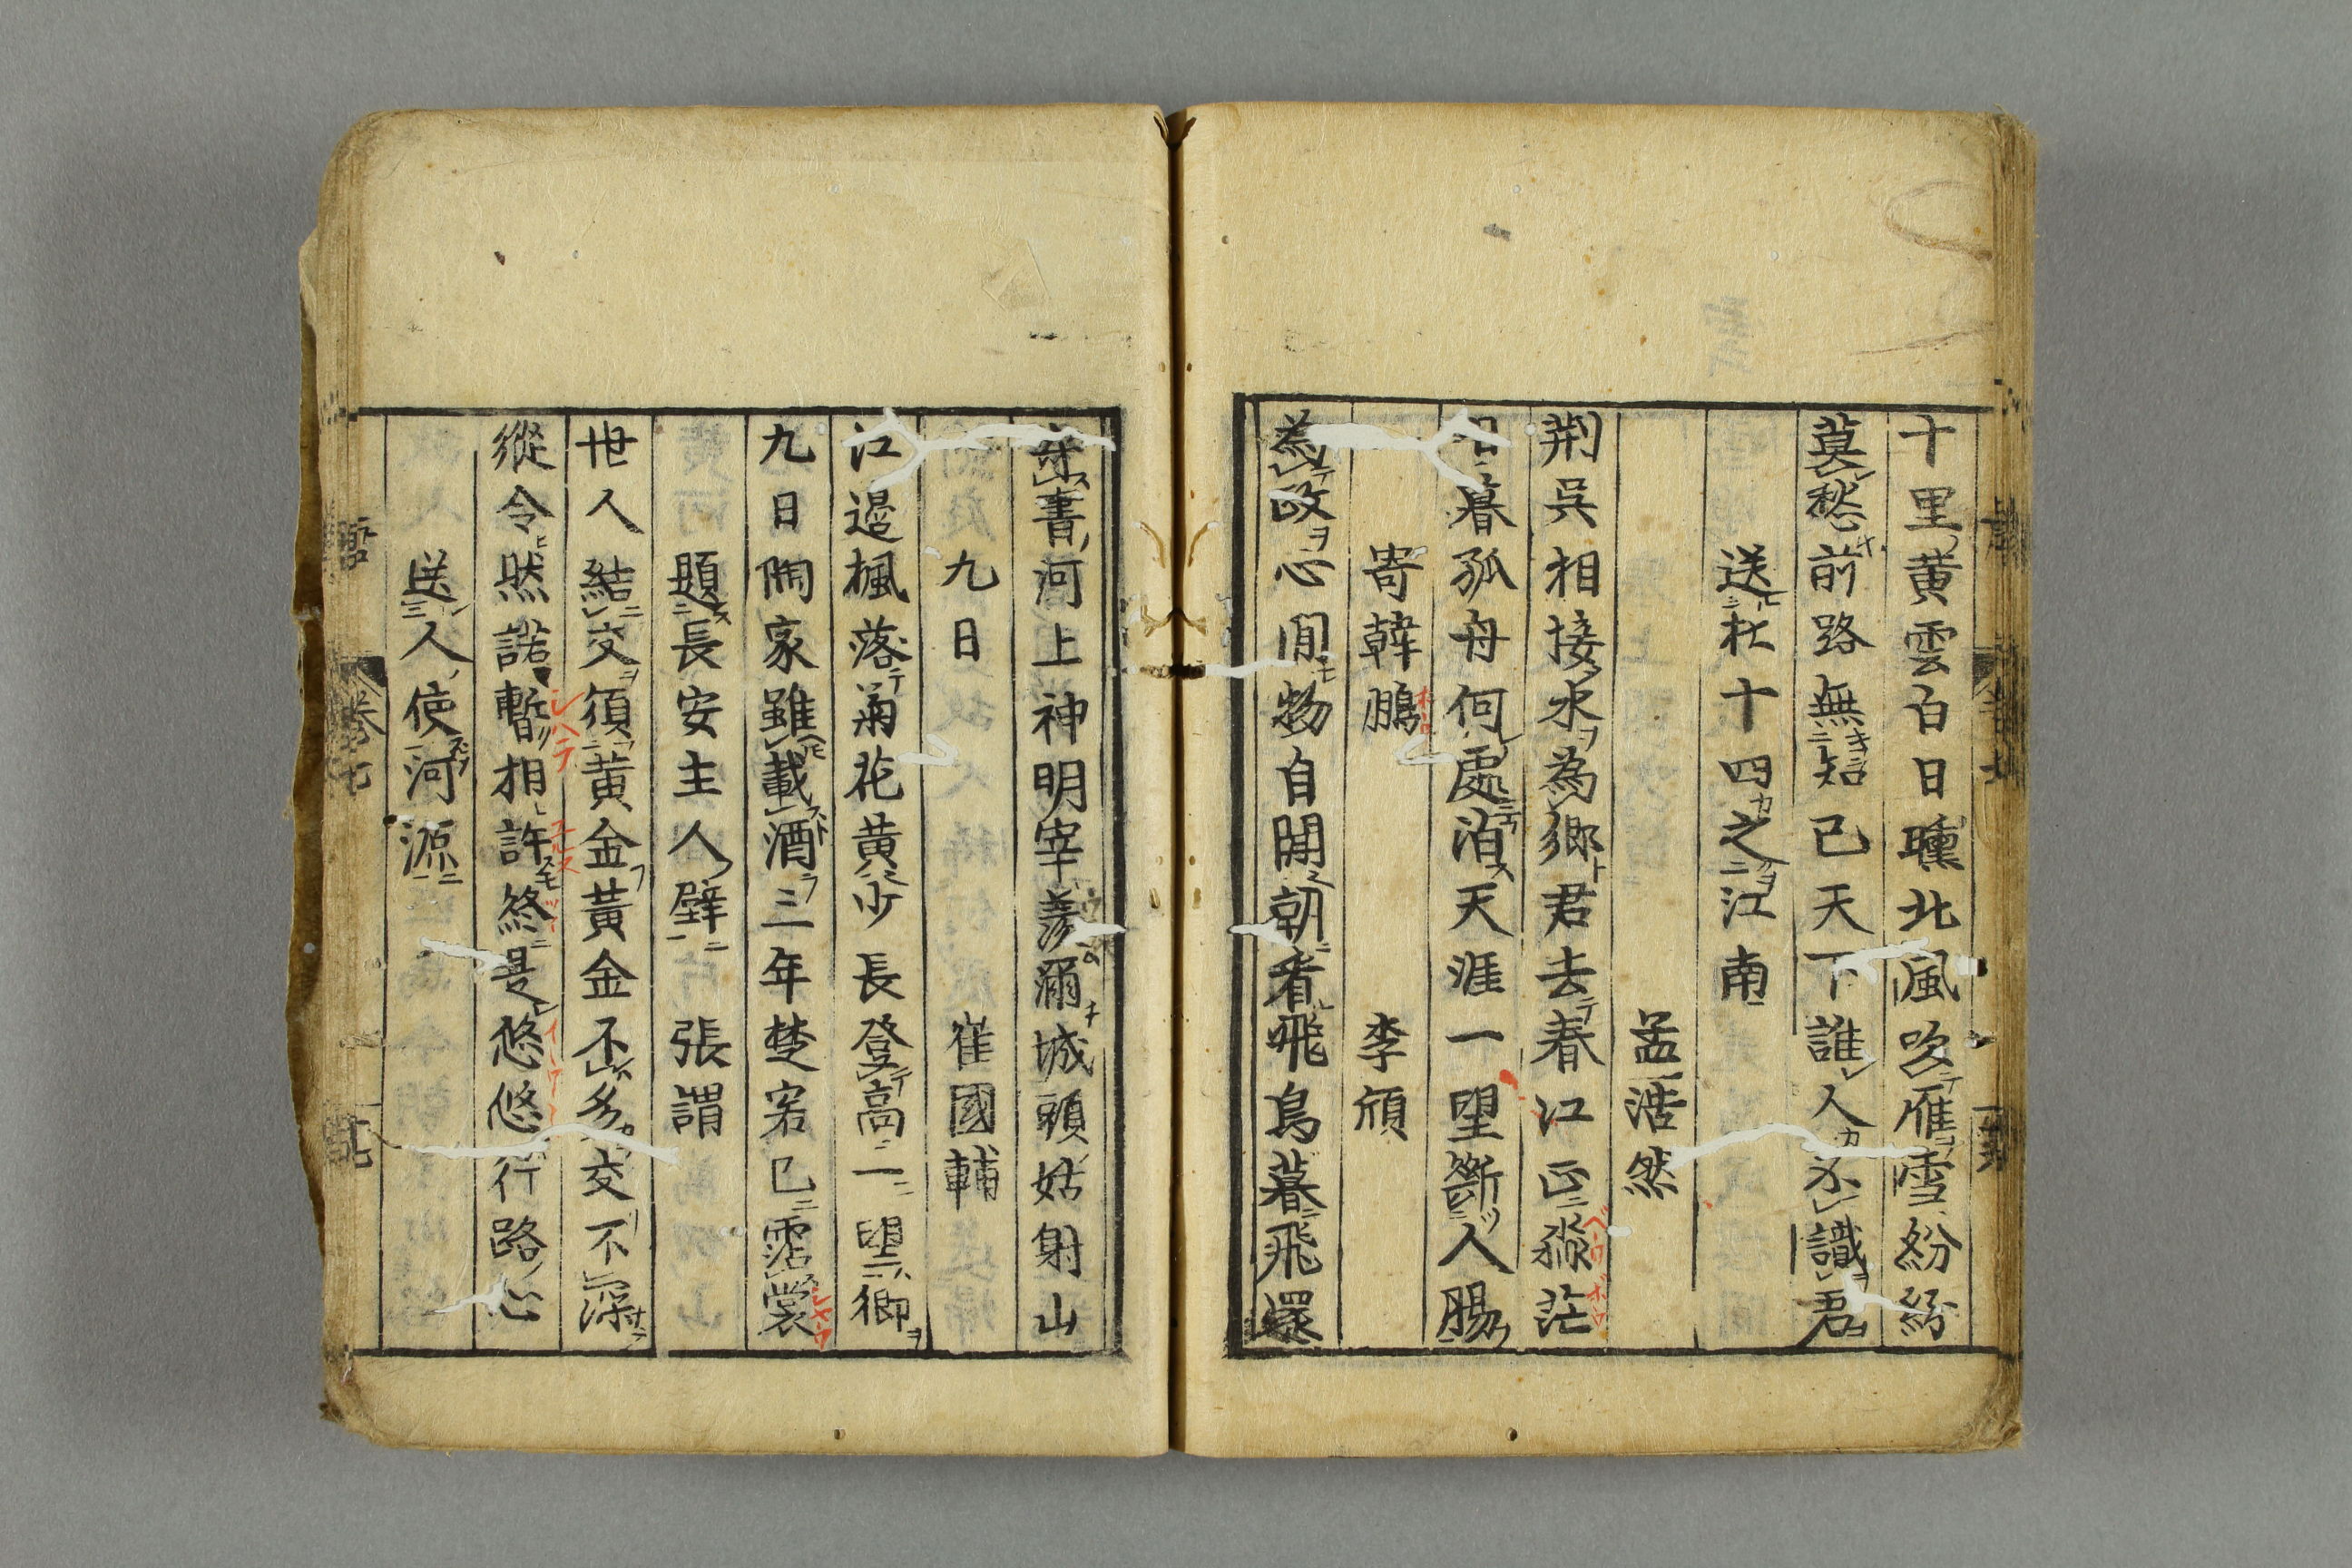 十里黄雲白日曛北風吹雁雪紛紛
莫愁前路無知已天下誰人不識君
送杜十四之江南
孟浩然
荆吳相接水為郷君去春江正淼茫
日暮孤舟何處泊天涯一望斷人腸
寄韓鵬
李頎
為政心閒物自閒朝看飛鳥暮飛還
寄書河上神明宰羨爾城頭姑射山
九日
崔國輔
江邊楓落菊花黄少長登高一望郷
九日陶家雖載酒三年楚客已霑裳
題長安主人壁
張謂
世人結交須黄金黄金不多交不深
縱令然諾暫相許終是悠悠行路心
送人使河源
卷七